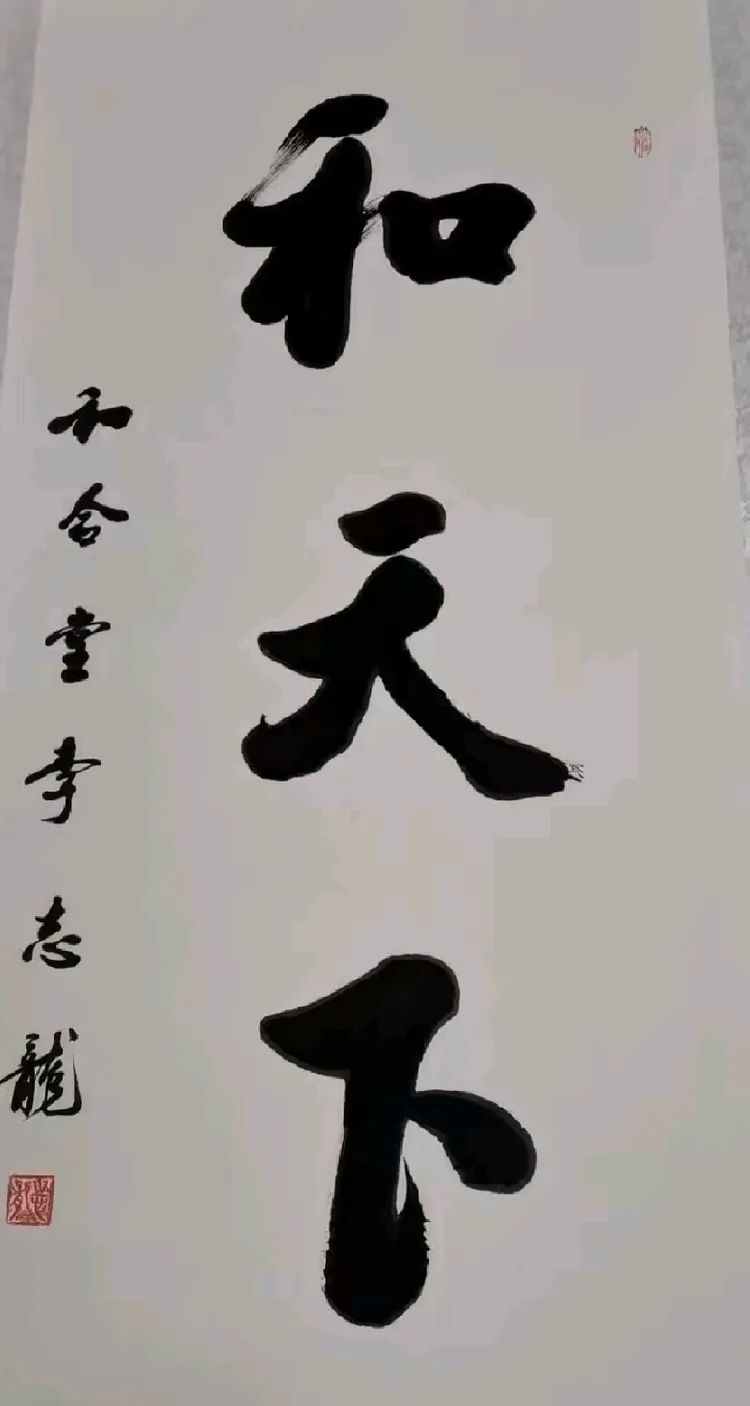 和天下
和合堂李志龍